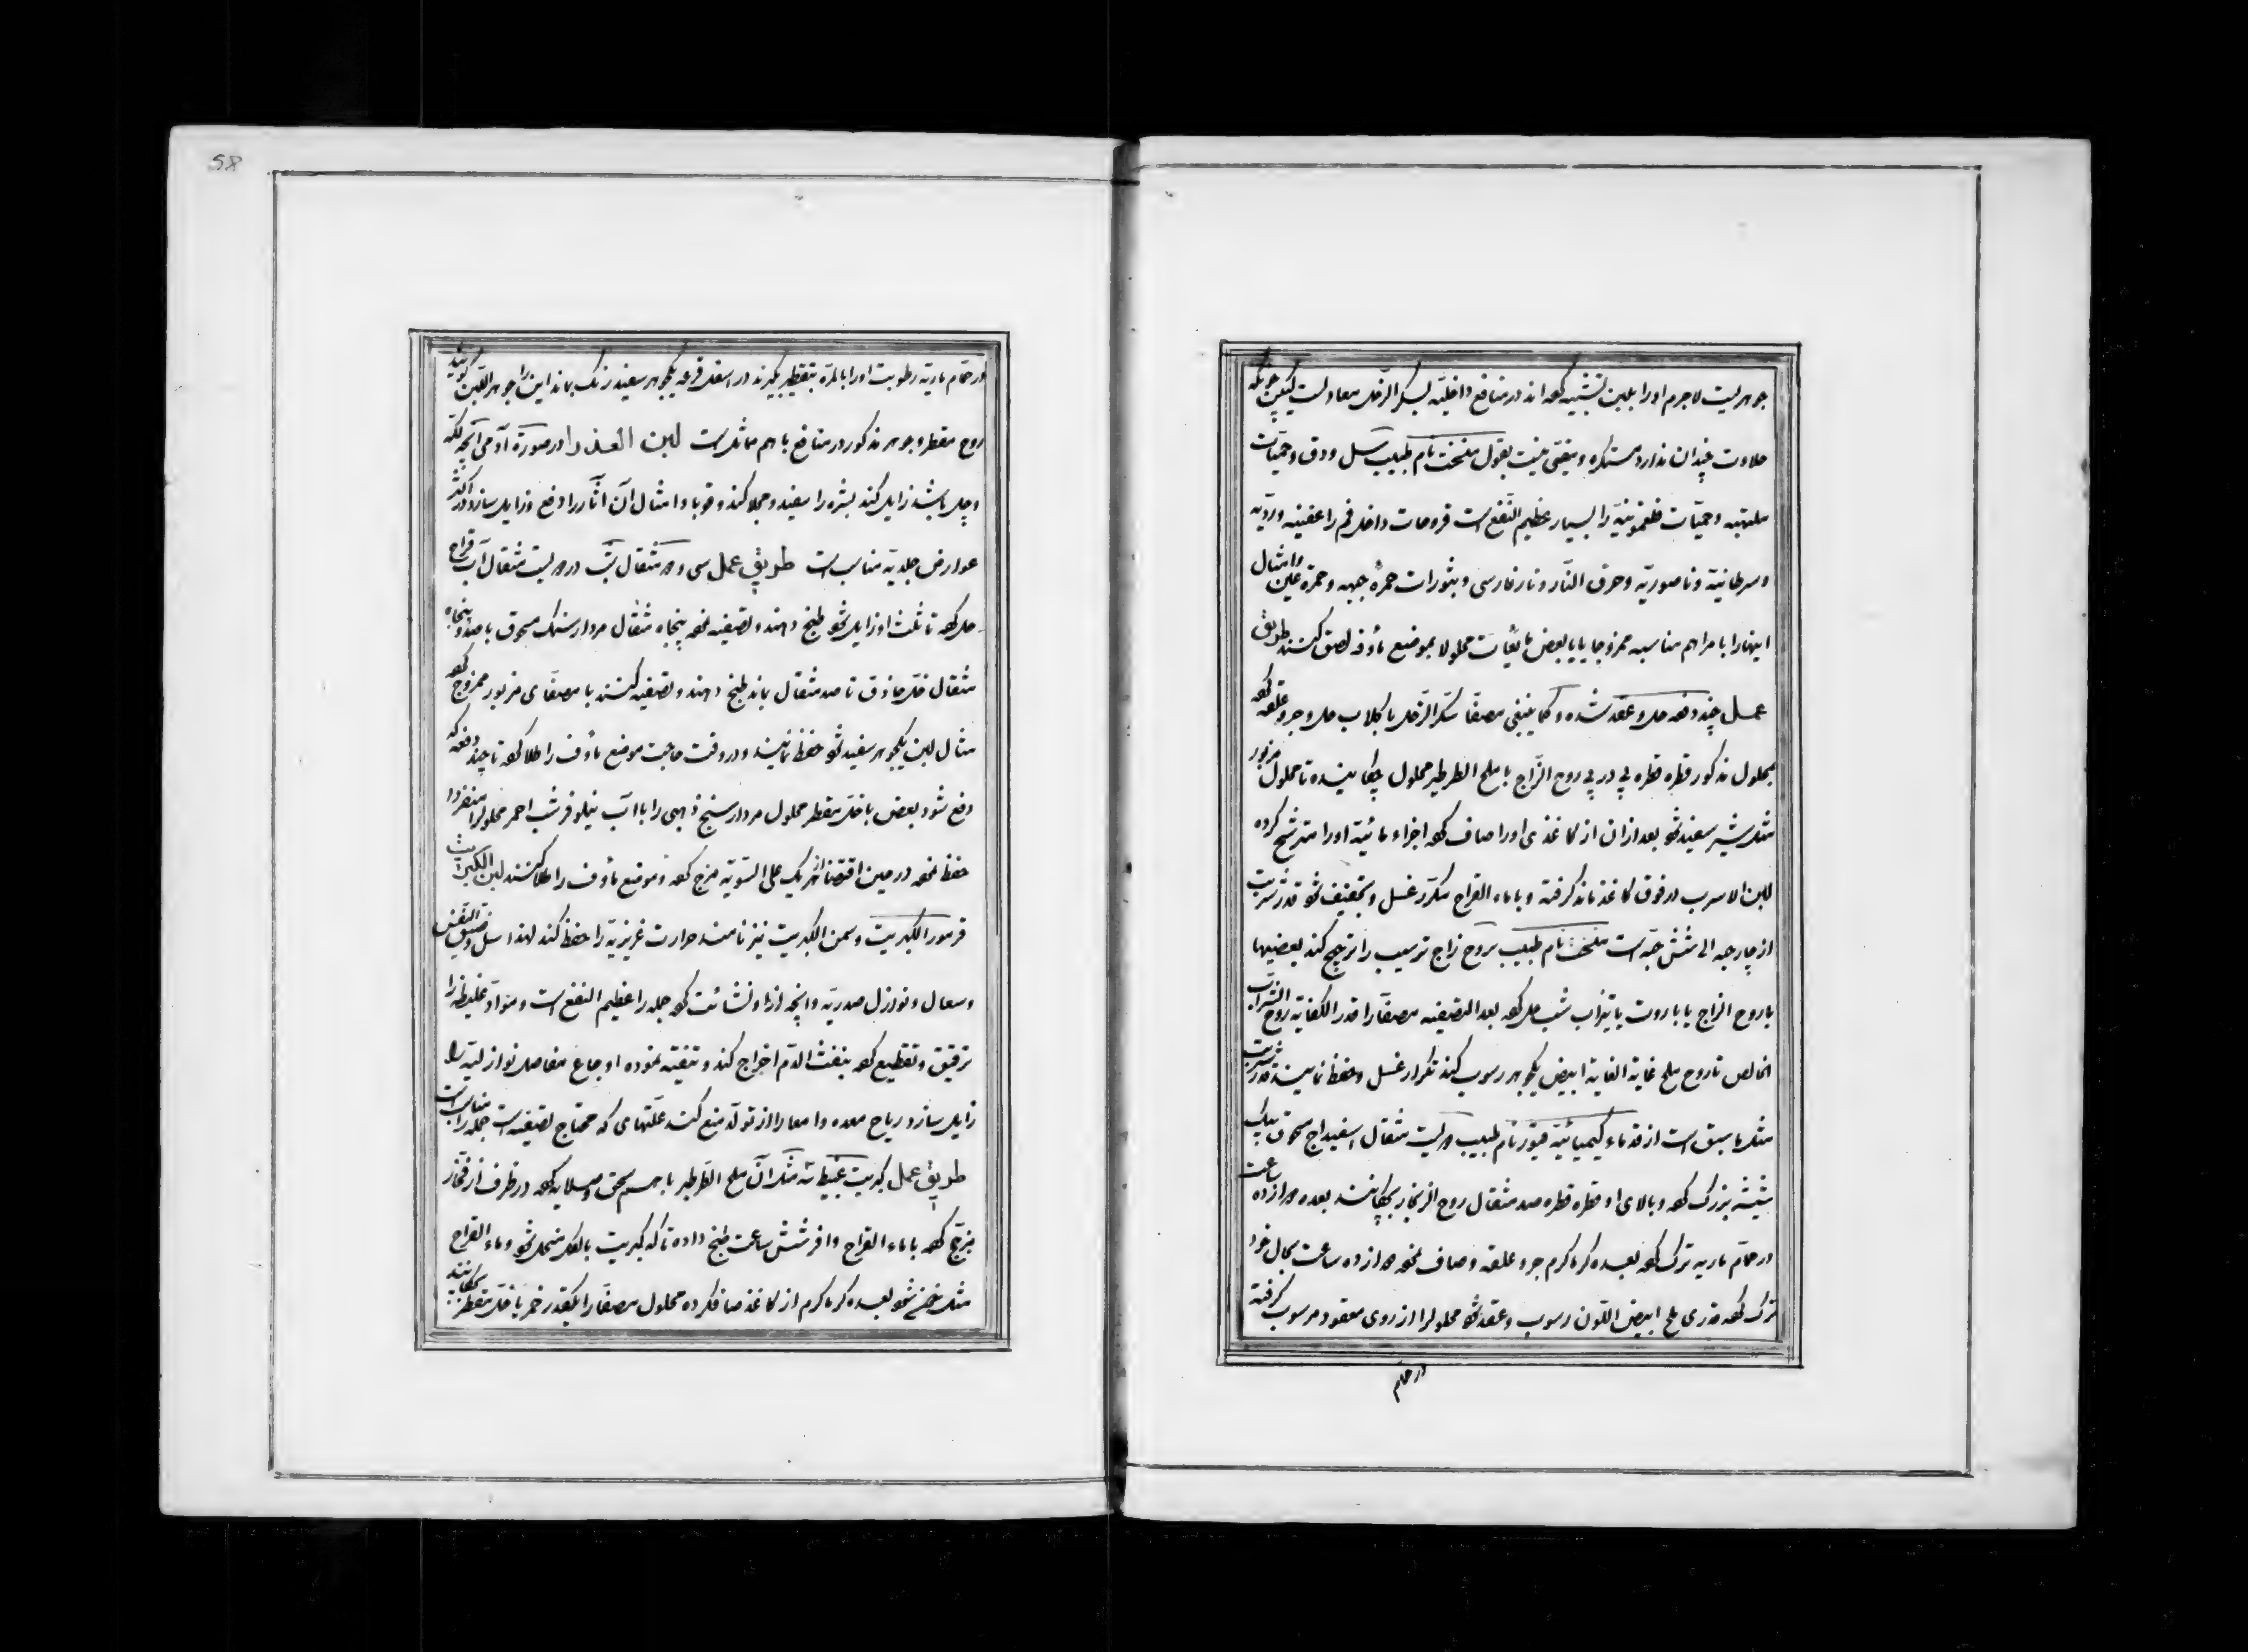 جوهریست لاجرم اورا بلبن تشبیه کرده اند در منافع داخلیه بسکر الزحل معادلست لیکن چونکه
حلاوت چندان ندارد مستکره و مقئی نیست بقول نام طبیب سل و دق و حمیات
ملتهبه و حمیات فلغمونیه را بسیار عظیم النفع است قروحات داخل فم را عفنیه و ردیه
و سرطانیه و ناصوریه و حرق النار و نار فارسی و بثورات حمرهٔ جبهه و حمرة عین و امثال
اینها را با مراهم مناسبه ممزوجا یا با بعض مایعات محلولا بموضع مأوف لصق کنند طریق
عمل چند دفعه حل و عقد شده و کما ینبغی مصفا سکر الزحل با کلاب حل و جر و علقه کرده
بمحلول مذکور قطره قطره پی در پی روح الزاج با ملح الطرطیر محلول چکانیده تا محلول مزبور
مثل شیر سفید شود بعد از ان از کاغذی اورا صاف کرده اجزاء مائیهٔ اورا مترشح کرده
لبن الاسرب در فوق کاغذ ماند گرفته و با ماء القراح مکرر غسل و تجفیف شود قدر شربت
از چار حبه الی شش حبه است نام طبیب بروح زاج ترسیب را ترجیح کند بعضیها
با روح الزاج یا باروت یا تیزاب شب حل کرده بعد التصفیه مصفا را قدر الکفایه روح الشراب
الخالص تا روح ملح غایة الغایه ابیض یکجوهر رسوب کند تکرار غسل و حفظ نمایند قدر شربت
مثل ما سبق است از قدماء کیمیائیه نام طبیب مثقال اسفیداج مسحوق بیک
شیشه بزرک کرده و بالای او قطره قطره صد مثقال روح الزنجار بچکانند بعده دوازده ساعت
در حمام ماریه ترک کرده بعده کرماکرم جر و علقه و صاف نموده دوازده ساعت بحال خود
ترک کرده قدری ملح ابیض اللون رسوب و عقد شود محلولرا از روی معقود مرسوب گرفته
در حمام
58
در حمام ماریه رطوبت اورا بالمره بتقطیر بگیرند در اسفل قرعه یکجوهر سفید رنک بماند این را جوهر اللبن گویند
روح مقطر و جوهر مذکور در منافع باهم مماثل است لبن العذرا در صورة آدمی آنچه لکه
و چل باشد زایل کند بشره را سفید و مجلا کند و قوبا و امثال آن آثار را دفع و زایل سازد در اکثر
عوارض جلدیه مناسب است طریق عمل سی و دو مثقال شب در دویست مثقال آب قراح
حل کرده تا ثلث او زایل شود طبخ دهند و تصفیه نموده پنجاه مثقال مردارسنک مسحوق با صد و پنجاه
مثقال خل حاذق تا صد مثقال بماند طبخ دهند و تصفیه کنند با مصفای مزبور ممزوج کرده
مثال لبن یکجوهر سفید شود حفظ نمایند و در وقت حاجت موضع مأوف را طلا کرده تا چند دفعه که
دفع شود بعض با خل مقطر محلول مردارسنج ذهبی را با آب نیلوفر شب احمر محلولرا منفردا
حفظ نموده در حین اقتضا از هر یک علی السویه مزج کرده و موضع مأوف را طلا کنند لبن الکبریت
قرمور الکبریت و سمن الکبریت نیز نامند حرارت غریزیه را حفظ کند لهذا سل و ضیق النفس
و سعال و نوازل صدریه و آنچه از او نشأت کرده جمله را عظیم النفع است و مواد غلیظه را
ترقیق و تقطیع کرده بنفث الدم اخراج کند و تنقیه نموده اوجاع مفاصل نوازلیه را
زایل سازد ریاح معده و امعا را از تولد منع کند علتهای که محتاج تصفیه است جمله را مناسب است
طریق عمل کبریت مثل آن ملح الطرطیر باهم سحق و صلایه کرده در ظرف از فخار
مزجج کرده با ماء القراح وافر شش ساعت طبخ داده تا که کبریت بالکل منحل شود و ماء القراح
مثل شود بعده کرماکرم از کاغذ صاف کرده محلول مصفا را بکقدر خمر یا خل مقطر بچکانند